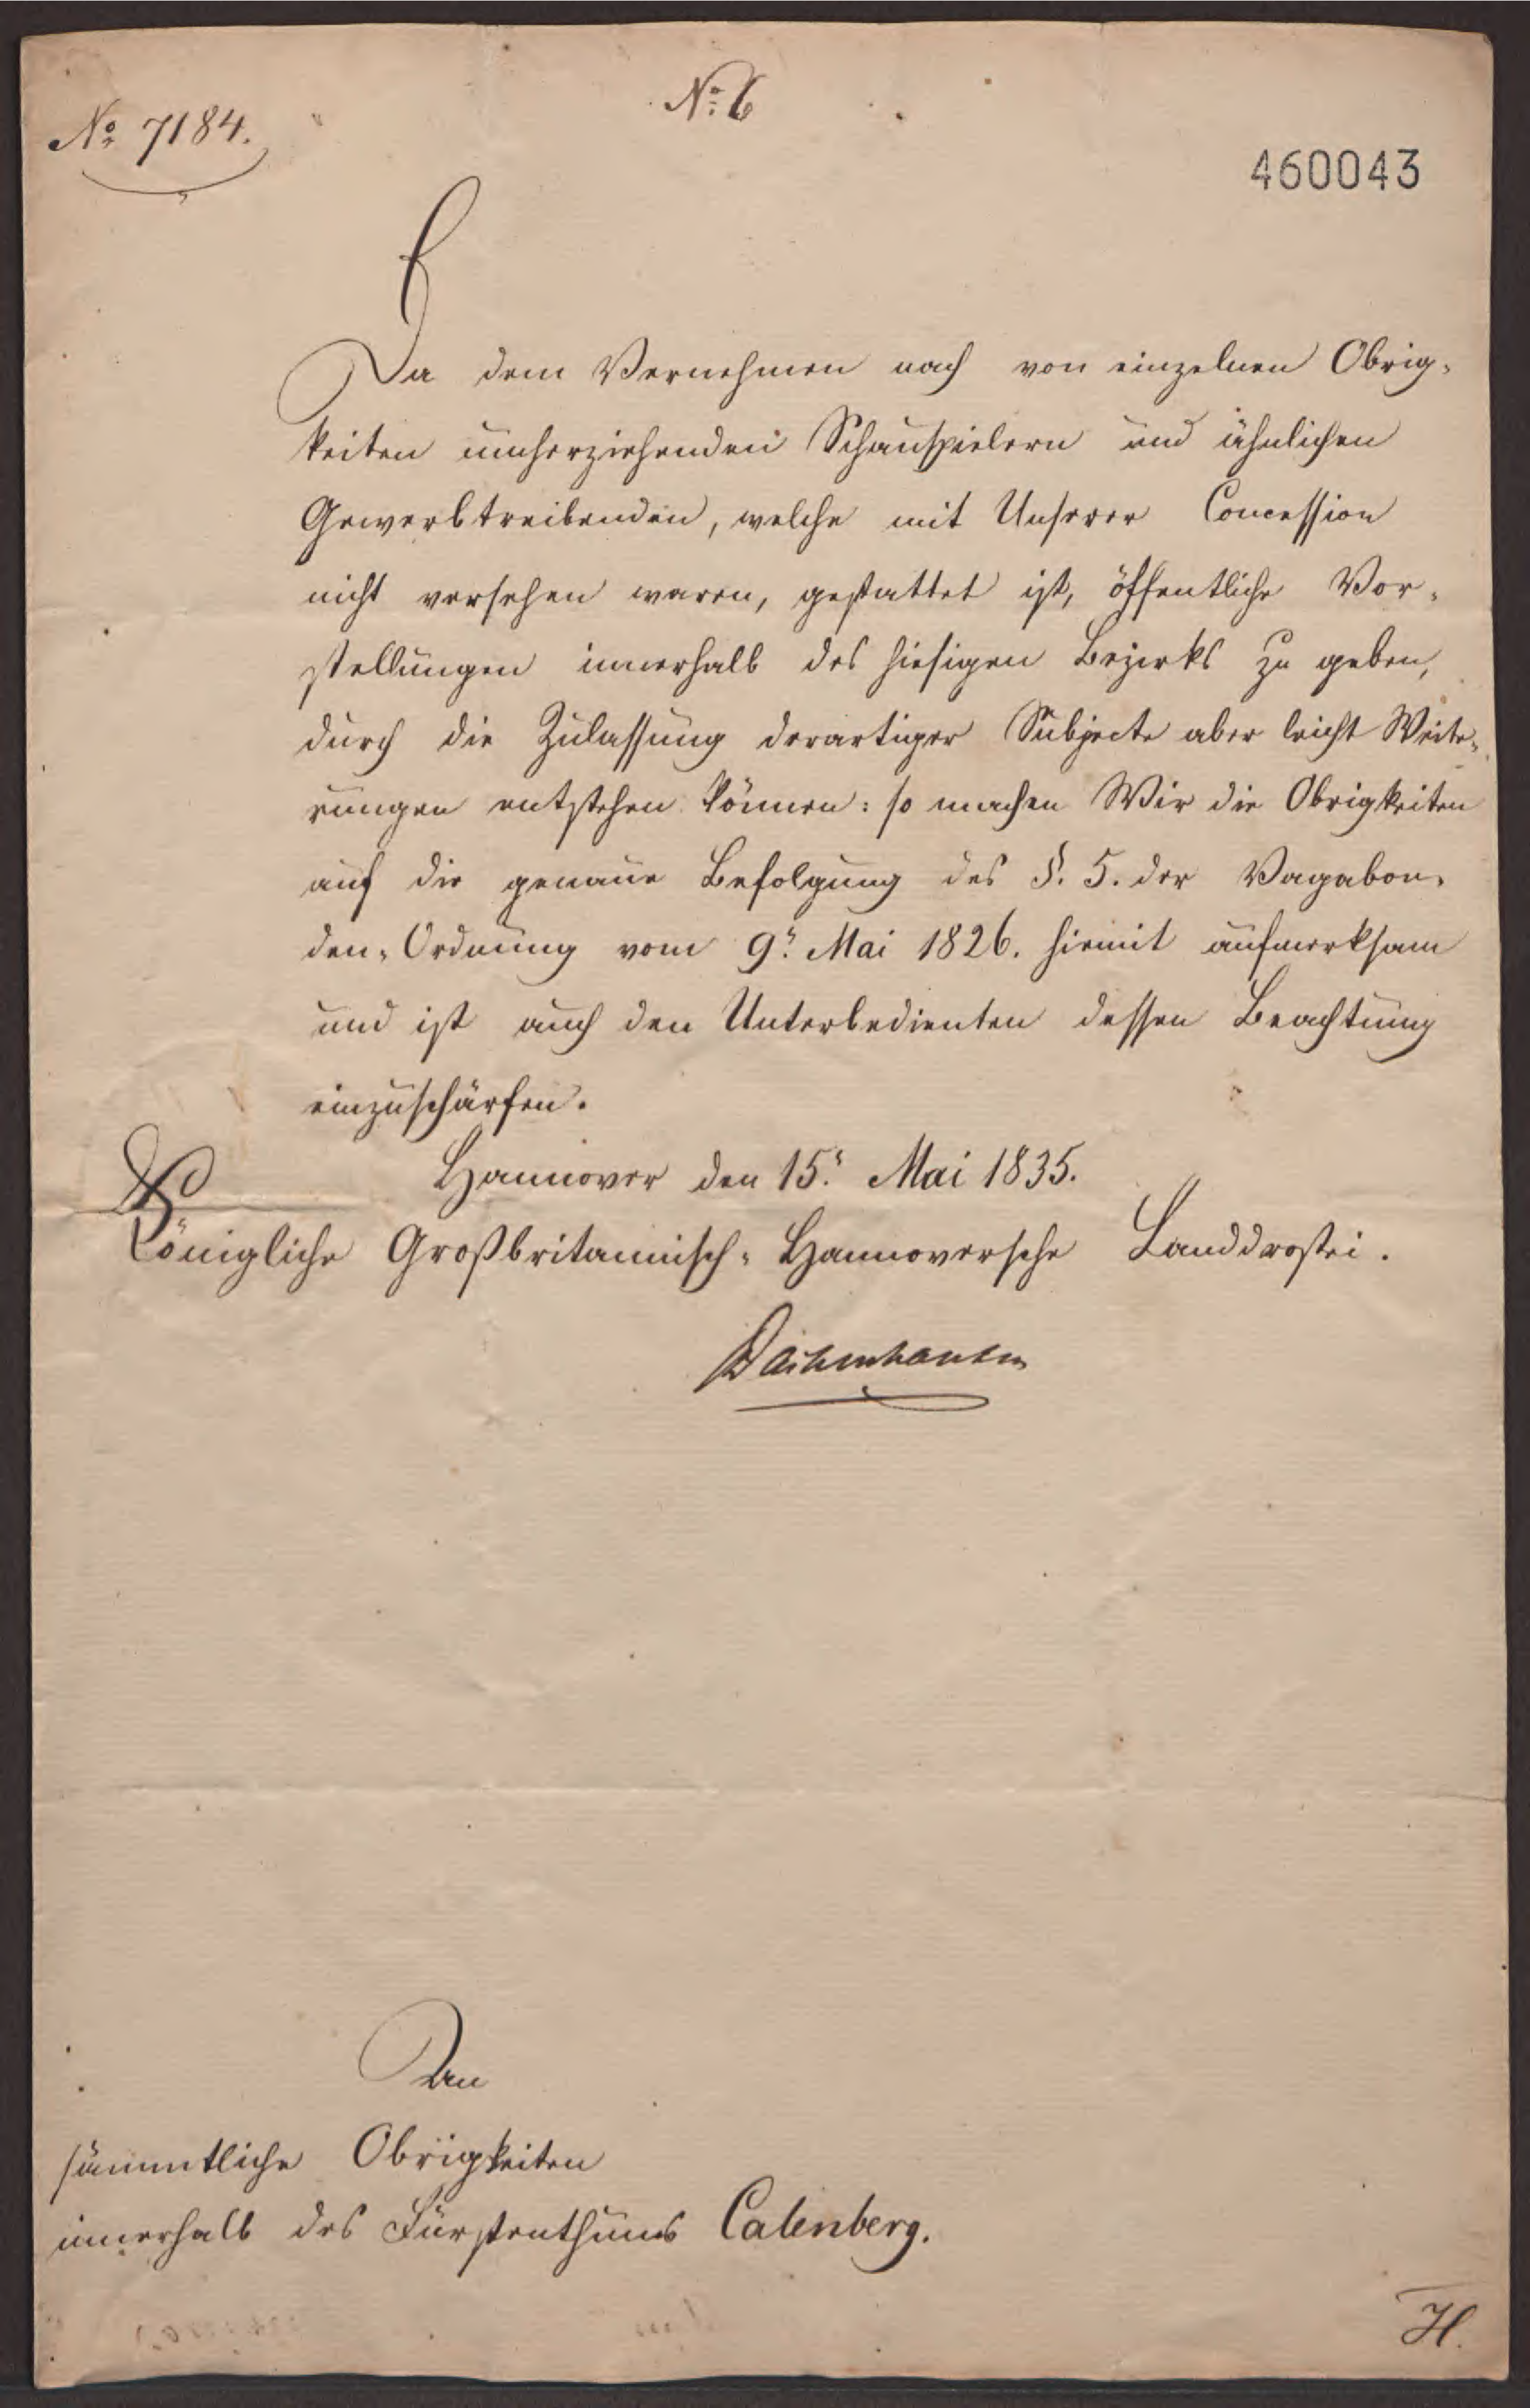 No 7184.
No 6
460043
Da dem Vernehmen nach von einzelnen Obrig-
keiten umherziehenden Schauspielern und ähnlichen
Gewerbtreibenden, welche mit Unserer Concession
nicht versehen waren, gestattet ist, öffentliche Vor-
stellungen innerhalb des hiesigen Bezirks zu geben,
durch die Zulassung derartiger Subjecte aber leicht Weite-
rungen entstehen können: so machen Wir die Obrigkeiten
auf die genaue Befolgung des §. 5. der Vagabon-
den-Ordnung vom 9n Mai 1826. hiemit aufmerksam
und ist auch den Unterbedienten dessen Beachtung
einzuschärfen.
Hannover den 15n Mai 1835.
Königliche Großbritannisch-Hannoversche Landdrostei.
Dachenhausen
An
sämmtliche Obrigkeiten
innerhalb des Fürstenthums Calenberg.
H.